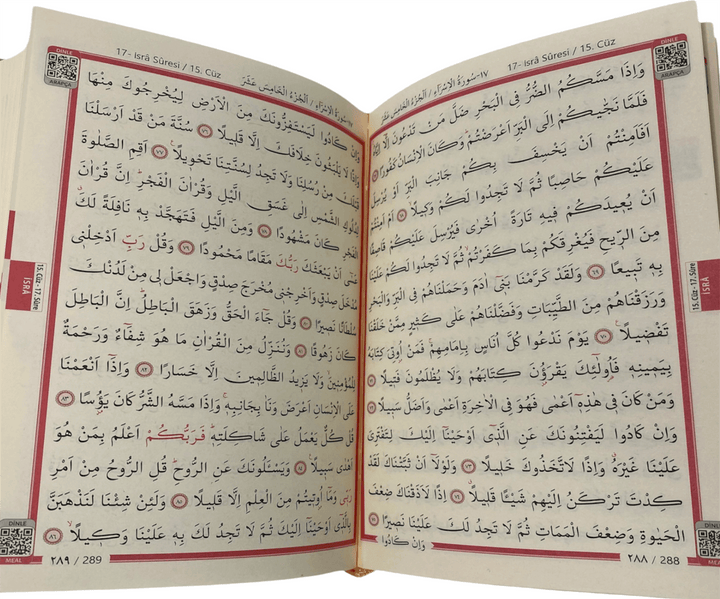 DİNLE
ARAPÇA
17- isrâ Sûresi / 15. Cüz
١٧-سُورَةُ الْاِسْرَاءِ / اَلْجُزْءُ الْخَامِسُ عَشَرَ
وَاِذَا مَسَّكُمُ الضُّرُّ فِي الْبَحْرِ ضَلَّ مَنْ تَدْعُونَ اِلَّٓا
فَلَمَّا نَجّٰيكُمْ اِلَى الْبَرِّ اَعْرَضْتُمْۜ وَكَانَ الْاِنْسَانُ كَفُورًا
اَفَاَمِنْتُمْ اَنْ يَخْسِفَ بِكُمْ جَانِبَ الْبَرِّ اَوْ يُرْسِلَ
عَلَيْكُمْ حَاصِبًا ثُمَّ لَا تَجِدُوا لَكُمْ وَكِيلًاۙ ٦٨ اَمْ اَمِنْتُمْ
اَنْ يُعِيدَكُمْ فِيهِ تَارَةً اُخْرٰى فَيُرْسِلَ عَلَيْكُمْ قَاصِفًا
مِنَ الرِّيحِ فَيُغْرِقَكُمْ بِمَا كَفَرْتُمْۙ ثُمَّ لَا تَجِدُوا لَكُمْ عَلَيْنَا
بِهِ تَبِيعًا ٦٩ وَلَقَدْ كَرَّمْنَا بَنِٓي اٰدَمَ وَحَمَلْنَاهُمْ فِي الْبَرِّ وَالْبَحْرِ
وَرَزَقْنَاهُمْ مِنَ الطَّيِّبَاتِ وَفَضَّلْنَاهُمْ عَلٰى كَثِيرٍ مِمَّنْ خَلَقْنَا
تَفْضِيلًا۟ ٧٠ يَوْمَ نَدْعُوا كُلَّ اُنَاسٍ بِاِمَامِهِمْۚ فَمَنْ اُو۫تِيَ كِتَابَهُ
بِيَمِينِهِ فَاُو۬لٰٓئِكَ يَقْرَؤُ۫نَ كِتَابَهُمْ وَلَا يُظْلَمُونَ فَتِيلًا ٧١
وَمَنْ كَانَ فِي هٰذِهِ اَعْمٰى فَهُوَ فِي الْاٰخِرَةِ اَعْمٰى وَاَضَلُّ سَبِيلًا ٧٢
وَاِنْ كَادُوا لَيَفْتِنُونَكَ عَنِ الَّذِٓي اَوْحَيْنَٓا اِلَيْكَ لِتَفْتَرِيَ
عَلَيْنَا غَيْرَهُۗ وَاِذًا لَاتَّخَذُوكَ خَلِيلًا ٧٣ وَلَوْلَٓا اَنْ ثَبَّتْنَاكَ لَقَدْ
كِدْتَ تَرْكَنُ اِلَيْهِمْ شَيْـًٔا قَلِيلًاۗ ٧٤ اِذًا لَاَذَقْنَاكَ ضِعْفَ
الْحَيٰوةِ وَضِعْفَ الْمَمَاتِ ثُمَّ لَا تَجِدُ لَكَ عَلَيْنَا نَصِيرًا ٧٥
وَاِنْ كَادُوا
15. Cüz - 17. Sûre
İSRÂ
٢٨٨ / 288
MEAL
DİNLE
ARAPÇA
17- isrâ Sûresi / 15. Cüz
١٧-سُورَةُ الْاِسْرَاءِ / اَلْجُزْءُ الْخَامِسُ عَشَرَ
وَاِنْ كَادُوا لَيَسْتَفِزُّونَكَ مِنَ الْاَرْضِ لِيُخْرِجُوكَ مِنْهَا
وَاِذًا لَا يَلْبَثُونَ خِلَافَكَ اِلَّا قَلِيلًا ٧٦ سُنَّةَ مَنْ قَدْ اَرْسَلْنَا
قَبْلَكَ مِنْ رُسُلِنَا وَلَا تَجِدُ لِسُنَّتِنَا تَحْوِيلًا۟ ٧٧ اَقِمِ الصَّلٰوةَ
لِدُلُوكِ الشَّمْسِ اِلٰى غَسَقِ الَّيْلِ وَقُرْاٰنَ الْفَجْرِۜ اِنَّ قُرْاٰنَ
الْفَجْرِ كَانَ مَشْهُودًا ٧٨ وَمِنَ الَّيْلِ فَتَهَجَّدْ بِهِ نَافِلَةً لَكَۗ
عَسٰٓى اَنْ يَبْعَثَكَ رَبُّكَ مَقَامًا مَحْمُودًا ٧٩ وَقُلْ رَبِّ اَدْخِلْنِي
مُدْخَلَ صِدْقٍ وَاَخْرِجْنِي مُخْرَجَ صِدْقٍ وَاجْعَلْ لِي مِنْ لَدُنْكَ
سُلْطَانًا نَصِيرًا ٨٠ وَقُلْ جَٓاءَ الْحَقُّ وَزَهَقَ الْبَاطِلُۜ اِنَّ الْبَاطِلَ
كَانَ زَهُوقًا ٨١ وَنُنَزِّلُ مِنَ الْقُرْاٰنِ مَا هُوَ شِفَٓاءٌ وَرَحْمَةٌ
لِلْمُؤْمِنِينَۙ وَلَا يَزِيدُ الظَّالِمِينَ اِلَّا خَسَارًا ٨٢ وَاِذَٓا اَنْعَمْنَا
عَلَى الْاِنْسَانِ اَعْرَضَ وَنَاٰ بِجَانِبِهِۚ وَاِذَا مَسَّهُ الشَّرُّ كَانَ يَؤُ۫سًا ٨٣
قُلْ كُلٌّ يَعْمَلُ عَلٰى شَاكِلَتِهِۜ فَرَبُّكُمْ اَعْلَمُ بِمَنْ هُوَ
اَهْدٰى سَبِيلًا۟ ٨٤ وَيَسْـَٔلُونَكَ عَنِ الرُّوحِۜ قُلِ الرُّوحُ مِنْ اَمْرِ
رَبِّي وَمَٓا اُو۫تِيتُمْ مِنَ الْعِلْمِ اِلَّا قَلِيلًا ٨٥ وَلَئِنْ شِئْنَا لَنَذْهَبَنَّ
بِالَّذِٓي اَوْحَيْنَٓا اِلَيْكَ ثُمَّ لَا تَجِدُ لَكَ بِهِ عَلَيْنَا وَكِيلًاۙ ٨٦
15. Cüz - 17. Sûre
İSRÂ
DİNLE
MEAL
٢٨٩ / 289